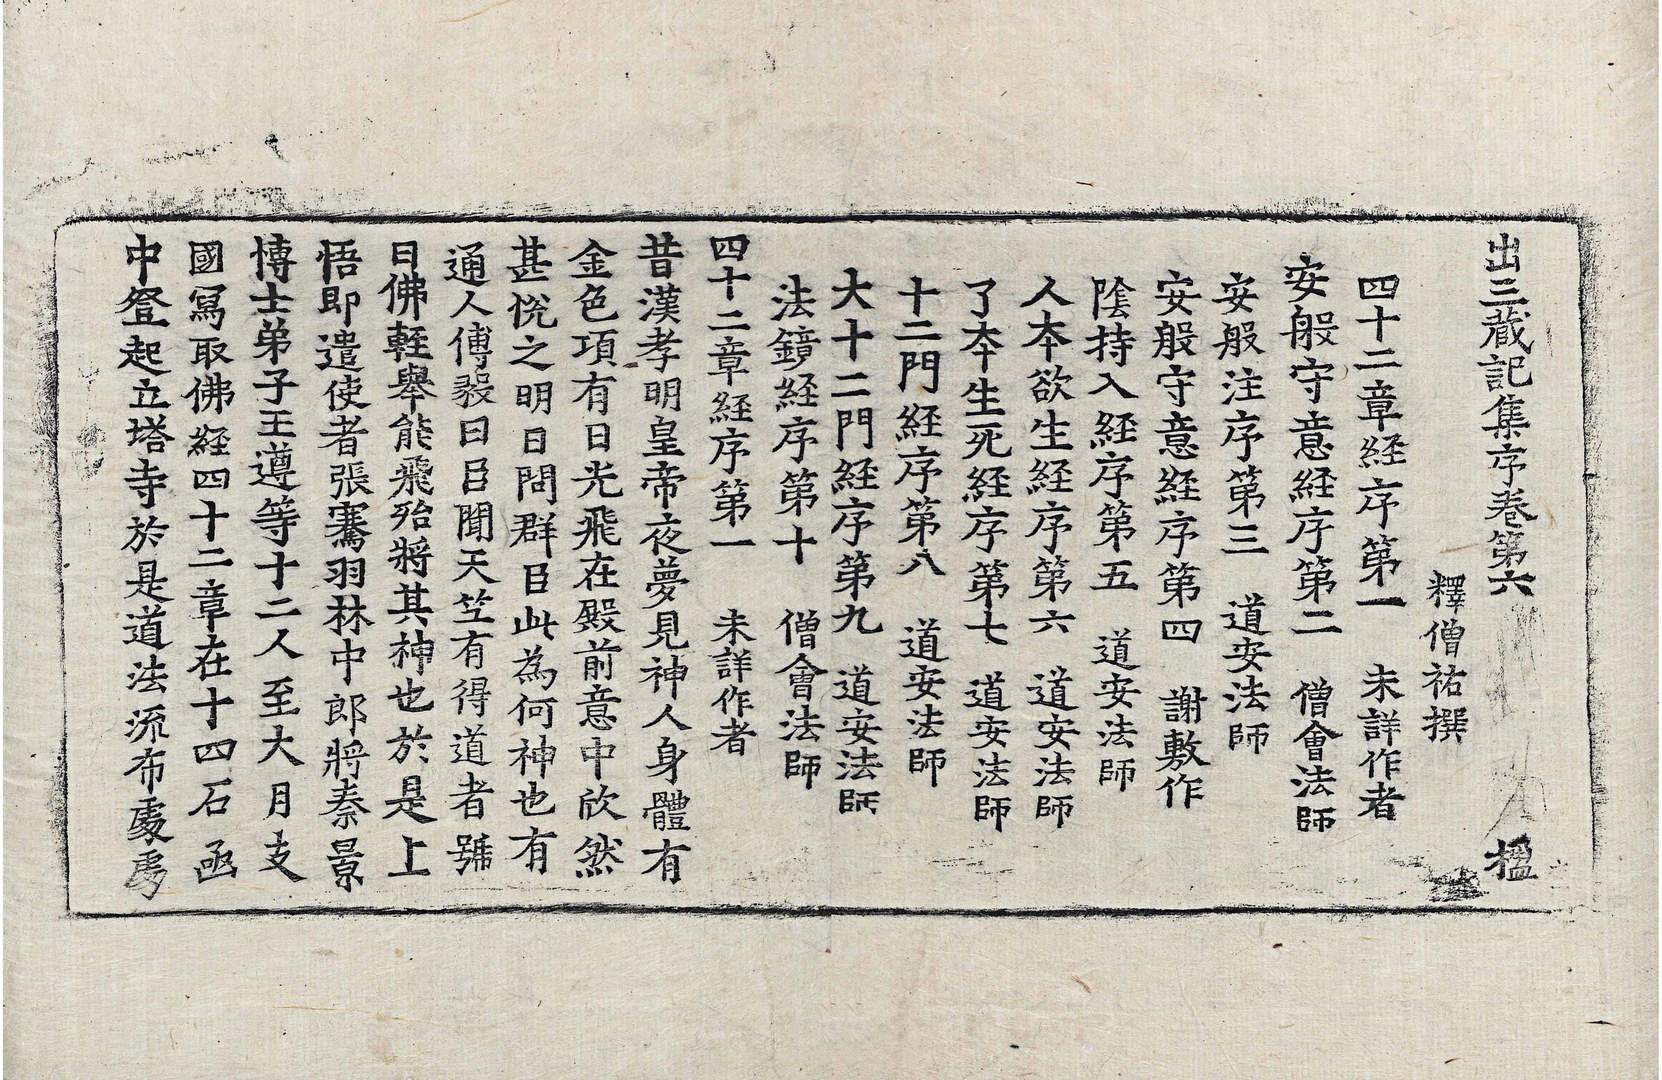 出三藏記集序卷第六 楹
釋僧祐撰
四十二章経序第一 未詳作者
安般守意経序第二 僧會法師
安般注序第三 道安法師
安般守意経序第四 謝敷作
陰持入経序第五 道安法師
人本欲生経序第六 道安法師
了本生死経序第七 道安法師
十二門経序第八 道安法師
大十二門経序第九 道安法師
法鏡経序第十 僧會法師
四十二章経序第一 未詳作者
昔漢孝明皇帝夜夢見神人身體有
金色項有日光飛在殿前意中欣然
甚恱之明日問群臣此為何神也有
通人傅毅曰臣聞天竺有得道者號
曰佛輕舉能飛殆將其神也於是上
悟即遣使者張騫羽林中郎將秦景
博士弟子王遵等十二人至大月支
國寫取佛経四十二章在十四石函
中登起立塔寺於是道法流布處處